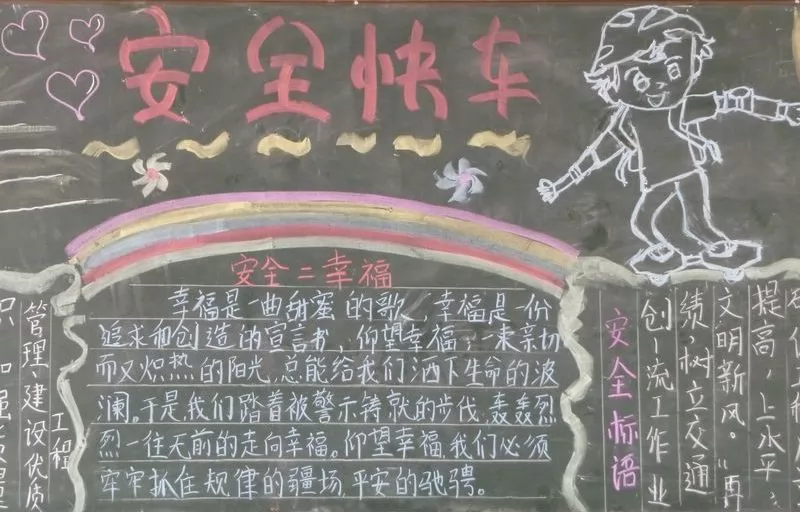 安全快车
安全=幸福
幸福是一曲甜蜜的歌,幸福是一份
追求和创造的宣言书,仰望幸福,一束亲切
而又炽热的阳光,总能给我们洒下生命的波
澜。于是我们踏着被警示铸就的步伐,轰轰烈
烈一往无前的走向幸福。仰望幸福,我们必须
牢牢抓住规律的疆场,平安的驰骋。
安全标语
提高,上水平,
文明新风。"再
绩,树立交通
创一流工作业
工程
管理,建设优质